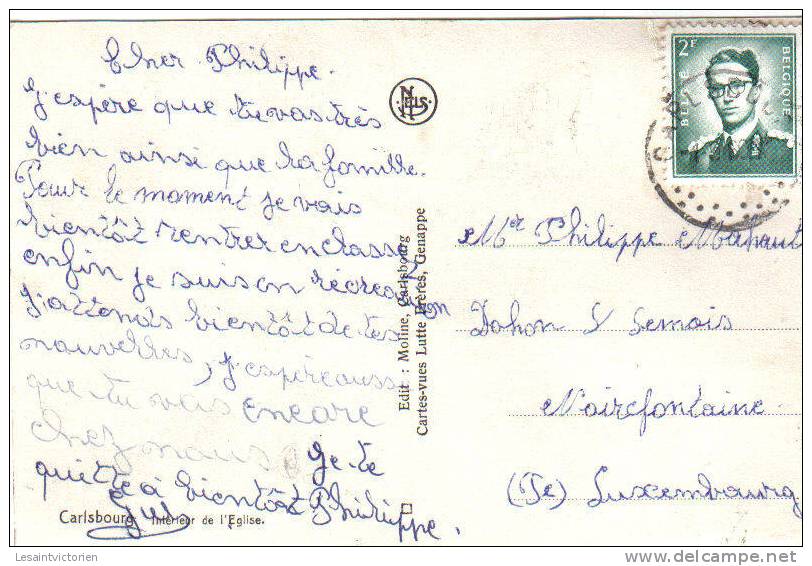 Cher Philippe.
J'espère que tu vas très
bien ainsi que la famille.
Pour le moment je vais
bientôt rentrer en classe
enfin je suis en récréation
j'attends bientôt de tes
nouvelles, j'espère aussi
que tu vas encore
chez nous Je te
quitte à bientôt Philippe.
Carlsbourg Intérieur de l'Eglise.
NELS
Edit : Moline, Carlsbourg
Cartes-vues Lutte Frères, Genappe
2F
BELGIE
BELGIQUE
Mer Philippe Mahaut
Dohon S/ Semois
Noirefontaine
(Pce) Luxembourg
Lesaintvictorien
delcampe.net